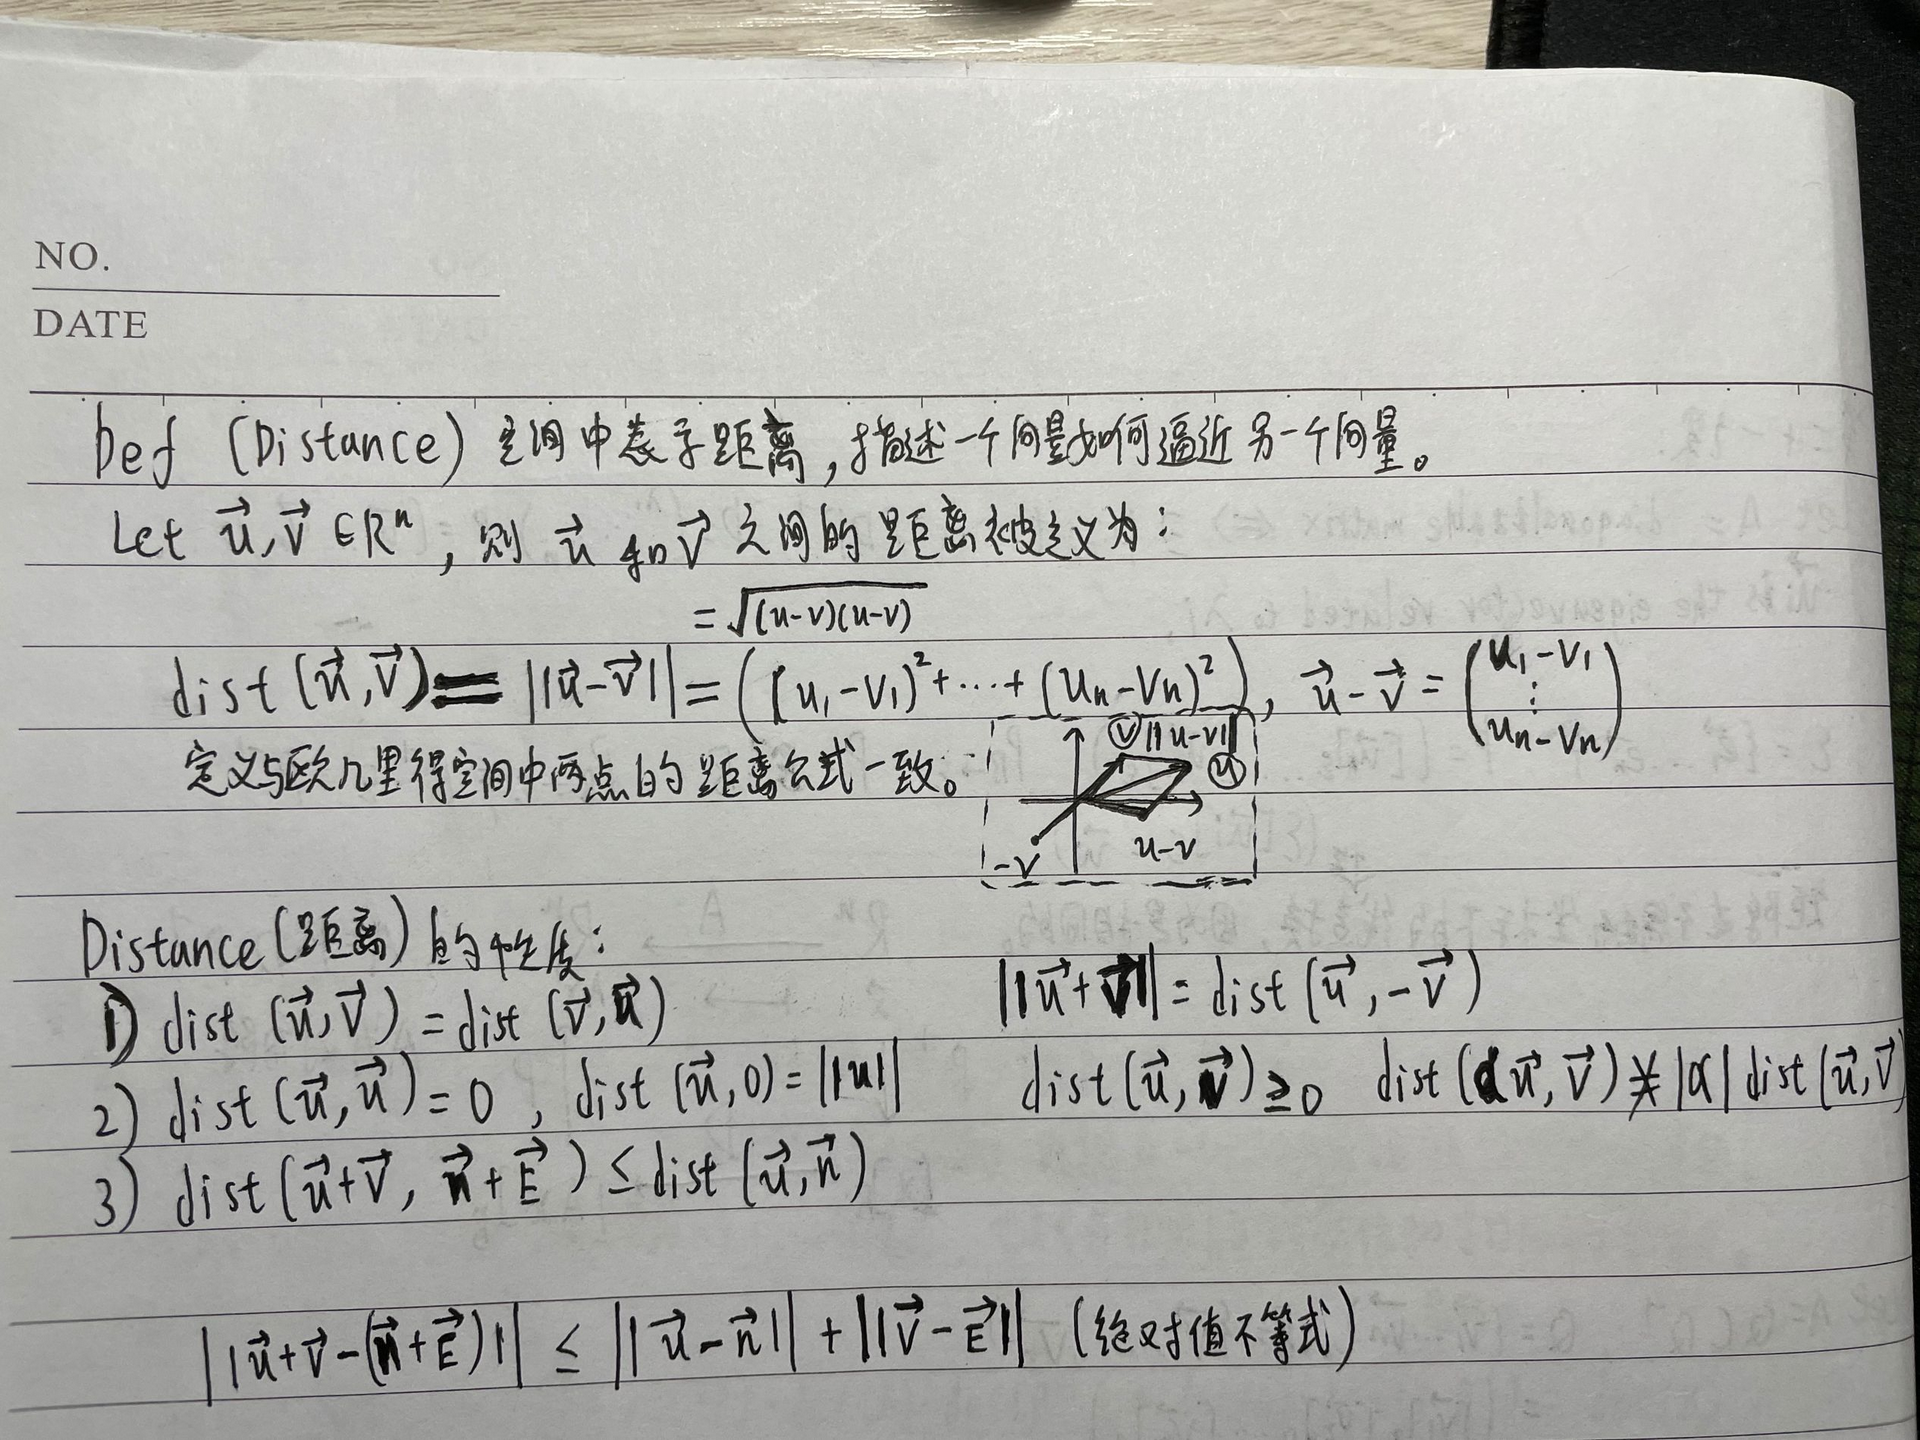 NO.
DATE
Def (Distance) 空间中表示距离,描述一个向量如何逼近另一个向量。
Let u⃗, v⃗ ∈ Rⁿ, 则 u⃗ 和 v⃗ 之间的距离被定义为:
= √(u-v)(u-v)
dist (u⃗, v⃗) = ||u⃗ - v⃗|| = ((u₁-v₁)² + ··· + (uₙ-vₙ)²), u⃗ - v⃗ = (u₁-v₁ ⋮ uₙ-vₙ)
定义与欧几里得空间中两点的距离公式一致。
v ||u-v||
u
-v u-v
Distance (距离) 的性质:
1) dist (u⃗, v⃗) = dist (v⃗, u⃗) ||u⃗ + v⃗|| = dist (u⃗, -v⃗)
2) dist (u⃗, u⃗) = 0, dist (u⃗, 0) = ||u|| dist (u⃗, v⃗) ≥ 0 dist (αu⃗, v⃗) ≠ |α| dist (u⃗, v⃗)
3) dist (u⃗+v⃗, n⃗+E⃗) ≤ dist (u⃗, n⃗)
||u⃗+v⃗-(n⃗+E⃗)|| ≤ ||u⃗-n⃗|| + ||v⃗-E⃗|| (绝对值不等式)